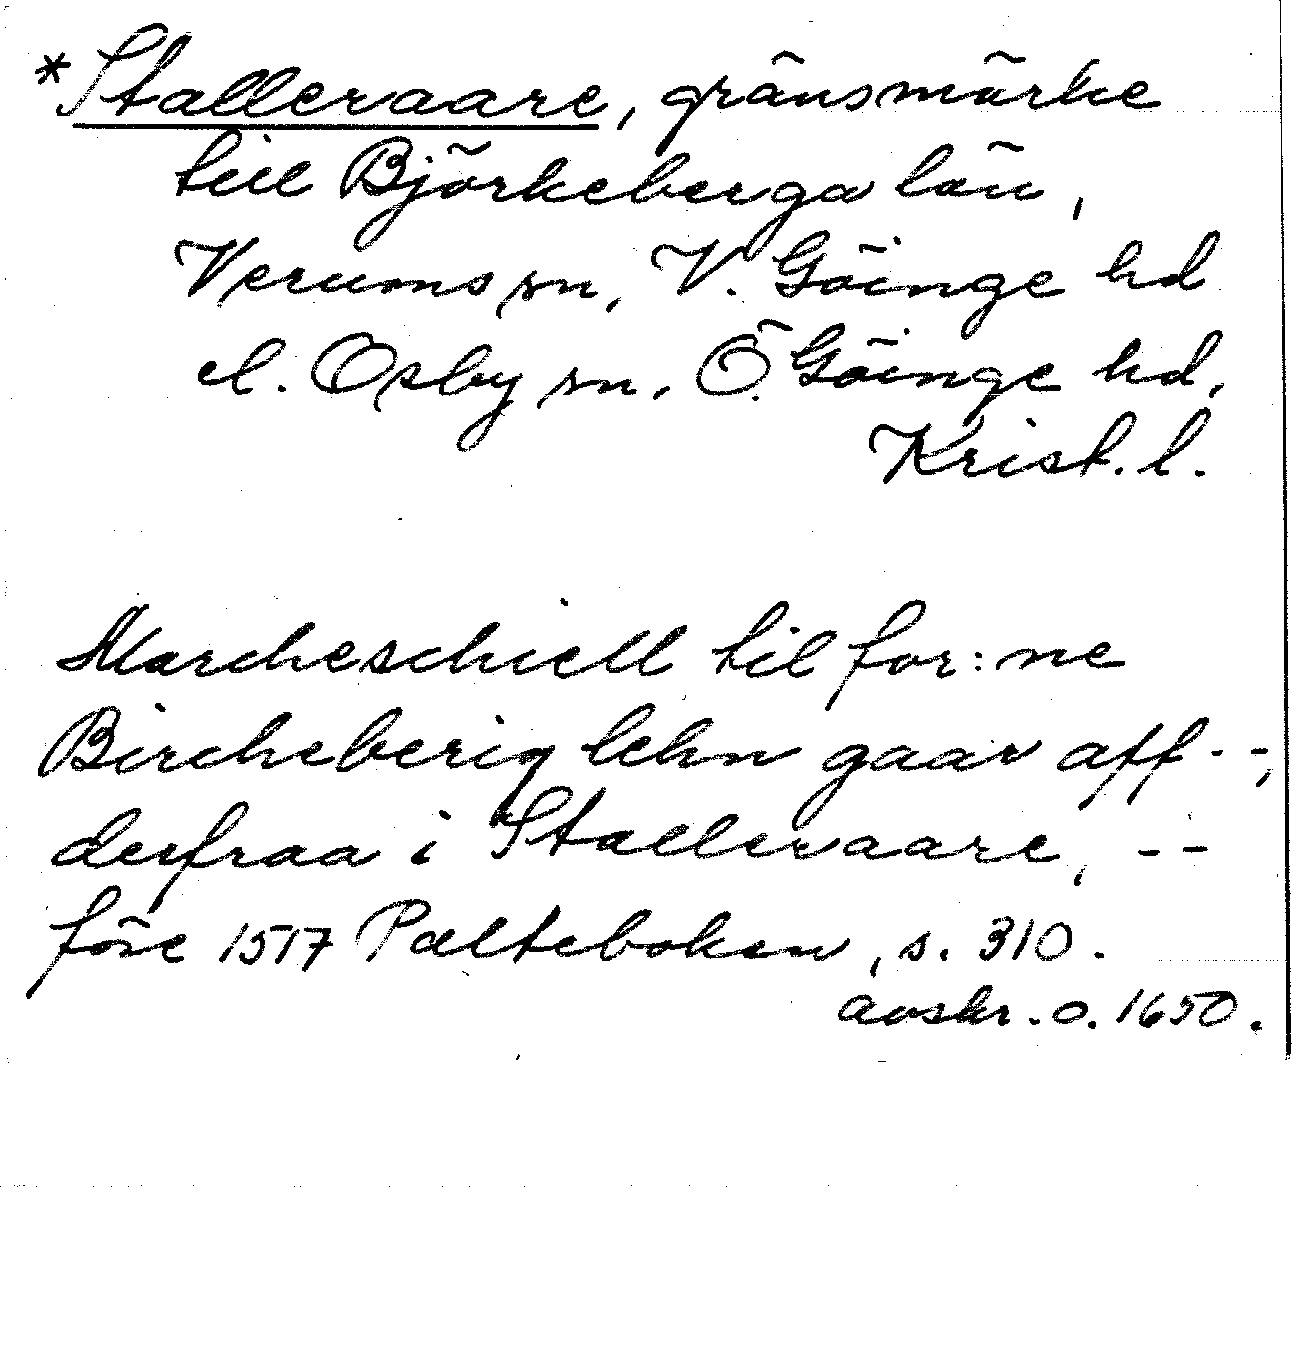 *Stalleraare, gränsmärke
till Björkeberga län,
Verums sn, V. Göinge hd
el. Osby sn. Ö. Göinge hd,
Krist. l.
Marcheschiell til for:ne
Bircheberig lehn gaar aff - -,
derfraa i Stalleraare, - -
före 1517 Palteboken, s. 310.
avskr. o. 1650.